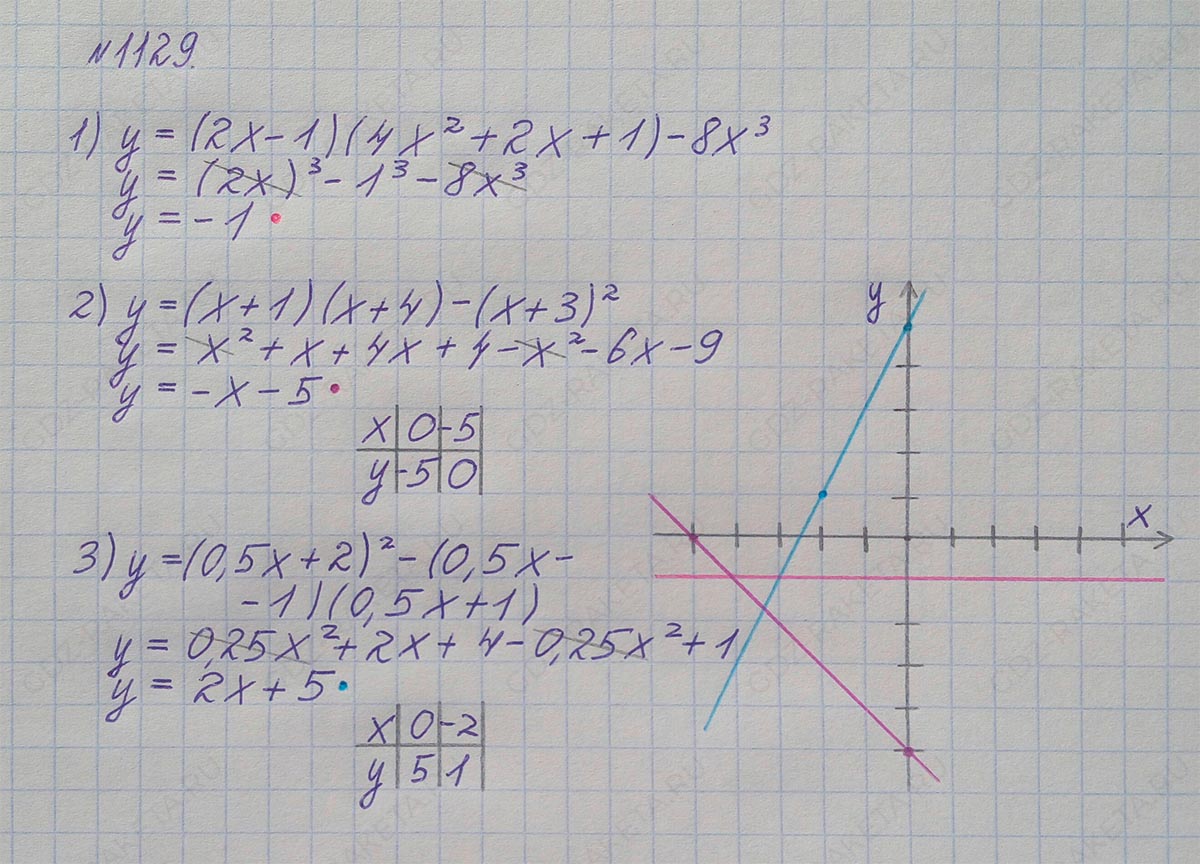 №1129.
1) y = (2x-1)(4x² + 2x + 1) - 8x³
y = (2x)³ - 1³ - 8x³
y = -1
2) y = (x+1)(x+4) - (x+3)²
y = x² + x + 4x + 4 - x² - 6x - 9
y = -x - 5
x 0 -5
y -5 0
3) y = (0,5x+2)² - (0,5x-
-1)(0,5x+1)
y = 0,25x² + 2x + 4 - 0,25x² + 1
y = 2x + 5
x 0 -2
y 5 1
y
x
GDZ-RAKETA.RU